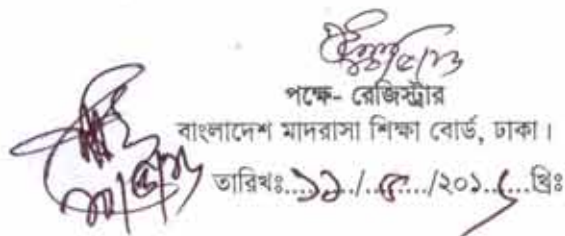 পক্ষে- রেজিস্ট্রার
বাংলাদেশ মাদরাসা শিক্ষা বোর্ড, ঢাকা।
তারিখঃ....১১../..৫.../২০১..৫...খ্রিঃ